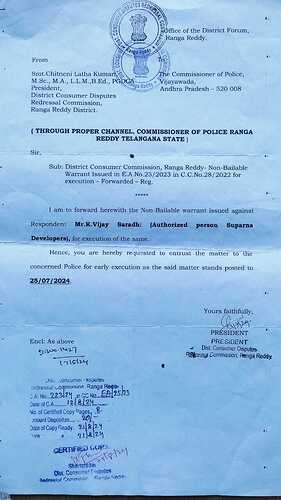 Office of the District Forum,
Ranga Reddy.
From
Smt.Chitneni Latha Kumari,
M.Sc., M.A., L.L.M.,B.Ed., PGDCA
President,
District Consumer Disputes
Redressal Commission,
Ranga Reddy District.
The Commissioner of Police,
Vijayawada,
Andhra Pradesh – 520 008
( THROUGH PROPER CHANNEL, COMMISSIONER OF POLICE RANGA
REDDY TELANGANA STATE )
Sir,
Sub: District Consumer Commission, Ranga Reddy- Non-Bailable
Warrant Issued in E.A No.23/2023 in C.C.No.28/2022 for
execution – Forwarded – Reg.
*****
I am to forward herewith the Non-Bailable warrant issued against
Respondent: Mr.K.Vijay Saradhi (Authorized person Suparna
Developers), for execution of the same.
Hence, you are hereby requested to entrust the matter to the
concerned Police for early execution as the said matter stands posted to
25/07/2024.
Yours faithfully,
PRESIDENT
PRESIDENT
Dist. Consumer Disputes
Redressal Commission, Ranga Reddy.
Encl: As above
Dist. Consumer Disputes
Redressal Commission, Ranga Reddy
C.A. No. 223/24 in CC No.
Date of C.A.
No. of Certified Copy Pages
Amount Deposited
Date of Copy Ready
CERTIFIED COPY
Dist. Consumer Disputes
Redressal Commission, Ranga Reddy